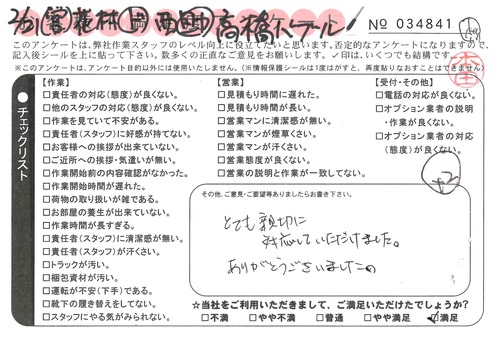 高橋
No 034841
このアンケートは、弊社作業スタッフのレベル向上に役立てたいと思います。否定的なアンケートになりますので、
記入後シールを上に貼って下さい。数多くの正直なご意見をお願いします。✓印は、いくつでも結構です。
※このアンケートは、アンケート目的以外には使用いたしません。(※情報保護シールは1度はがすと、再度貼りなおすことはできません)
チェックリスト
【作業】
□責任者の対応(態度)が良くない。
□他のスタッフの対応(態度)が良くない。
□作業を見ていて不安がある。
□責任者(スタッフ)に好感が持てない。
□お客様への挨拶が出来ていない。
□ご近所への挨拶・気遣いが無い。
□作業開始前の内容確認がなかった。
□作業開始時間が遅れた。
□荷物の取り扱いが雑である。
□お部屋の養生が出来ていない。
□作業時間が長すぎる。
□責任者(スタッフ)に清潔感が無い。
□責任者(スタッフ)が汗くさい。
□トラックが汚い。
□梱包資材が汚い。
□運転が不安(下手)である。
□靴下の履き替えをしてない。
□スタッフにやる気がみられない。
【営業】
□見積もり時間に遅れた。
□見積もり時間が長い。
□営業マンに清潔感が無い。
□営業マンが煙草くさい。
□営業マンが汗くさい。
□営業態度が良くない。
□営業の説明と作業が一致してない。
【受付・その他】
□電話の対応が良くない。
□オプション業者の説明
・作業が良くない。
□オプション業者の対応
(態度)が良くない。
その他、ご意見・ご要望等ありましたらお書き下さい。
とても親切に
対応していただけました。
ありがとうございました
☆当社をご利用いただきまして、ご満足いただけたでしょうか?
□不満 □やや不満 □普通 □やや満足 ☑満足